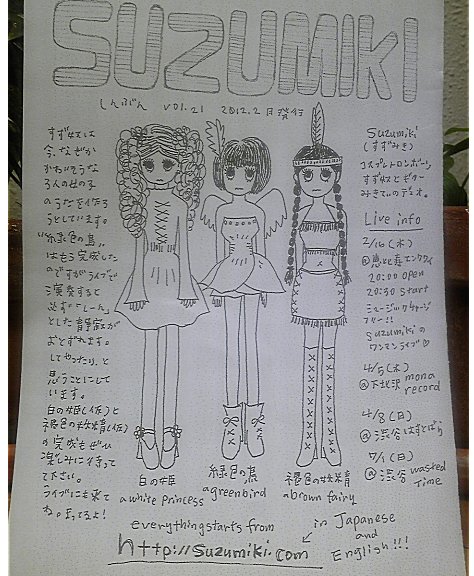 SUZUMIKI
しんぶん vol.21 2012.2月発行
すず奴は
今、なぜか
かわいそうな
3人の女の子
のうたを作ろ
うとしています。
"緑色の鳥"
はもう完成した
のですがライブで
演奏すると
必ず「しーん」
とした静寂が
おとずれます。
してやったり、と
思うことにして
います。
白の姫(仮)と
褐色の妖精(仮)
の完成もぜひ
楽しみに待って
て下さい。
ライブにも来て
ね。まってるよ!
白の姫
a white princess
緑色の鳥
a greenbird
褐色の妖精
a brown fairy
Suzumiki
(すずみき)
コスプレトロンボーン
すず奴とギター
みきてぃのデュオ。
Live info
2/16(木)
@恵比寿
20:00 open
20:30 start
ミュージックチャージ
フリー!!
suzumikiの
ワンマンライブ♡
4/5(木)
@下北沢 mona
record
4/8(日)
@渋谷
7/1(日)
@渋谷 wasted
Time
everythingstarts from
http://suzumiki.com
in Japanese
and
English!!!